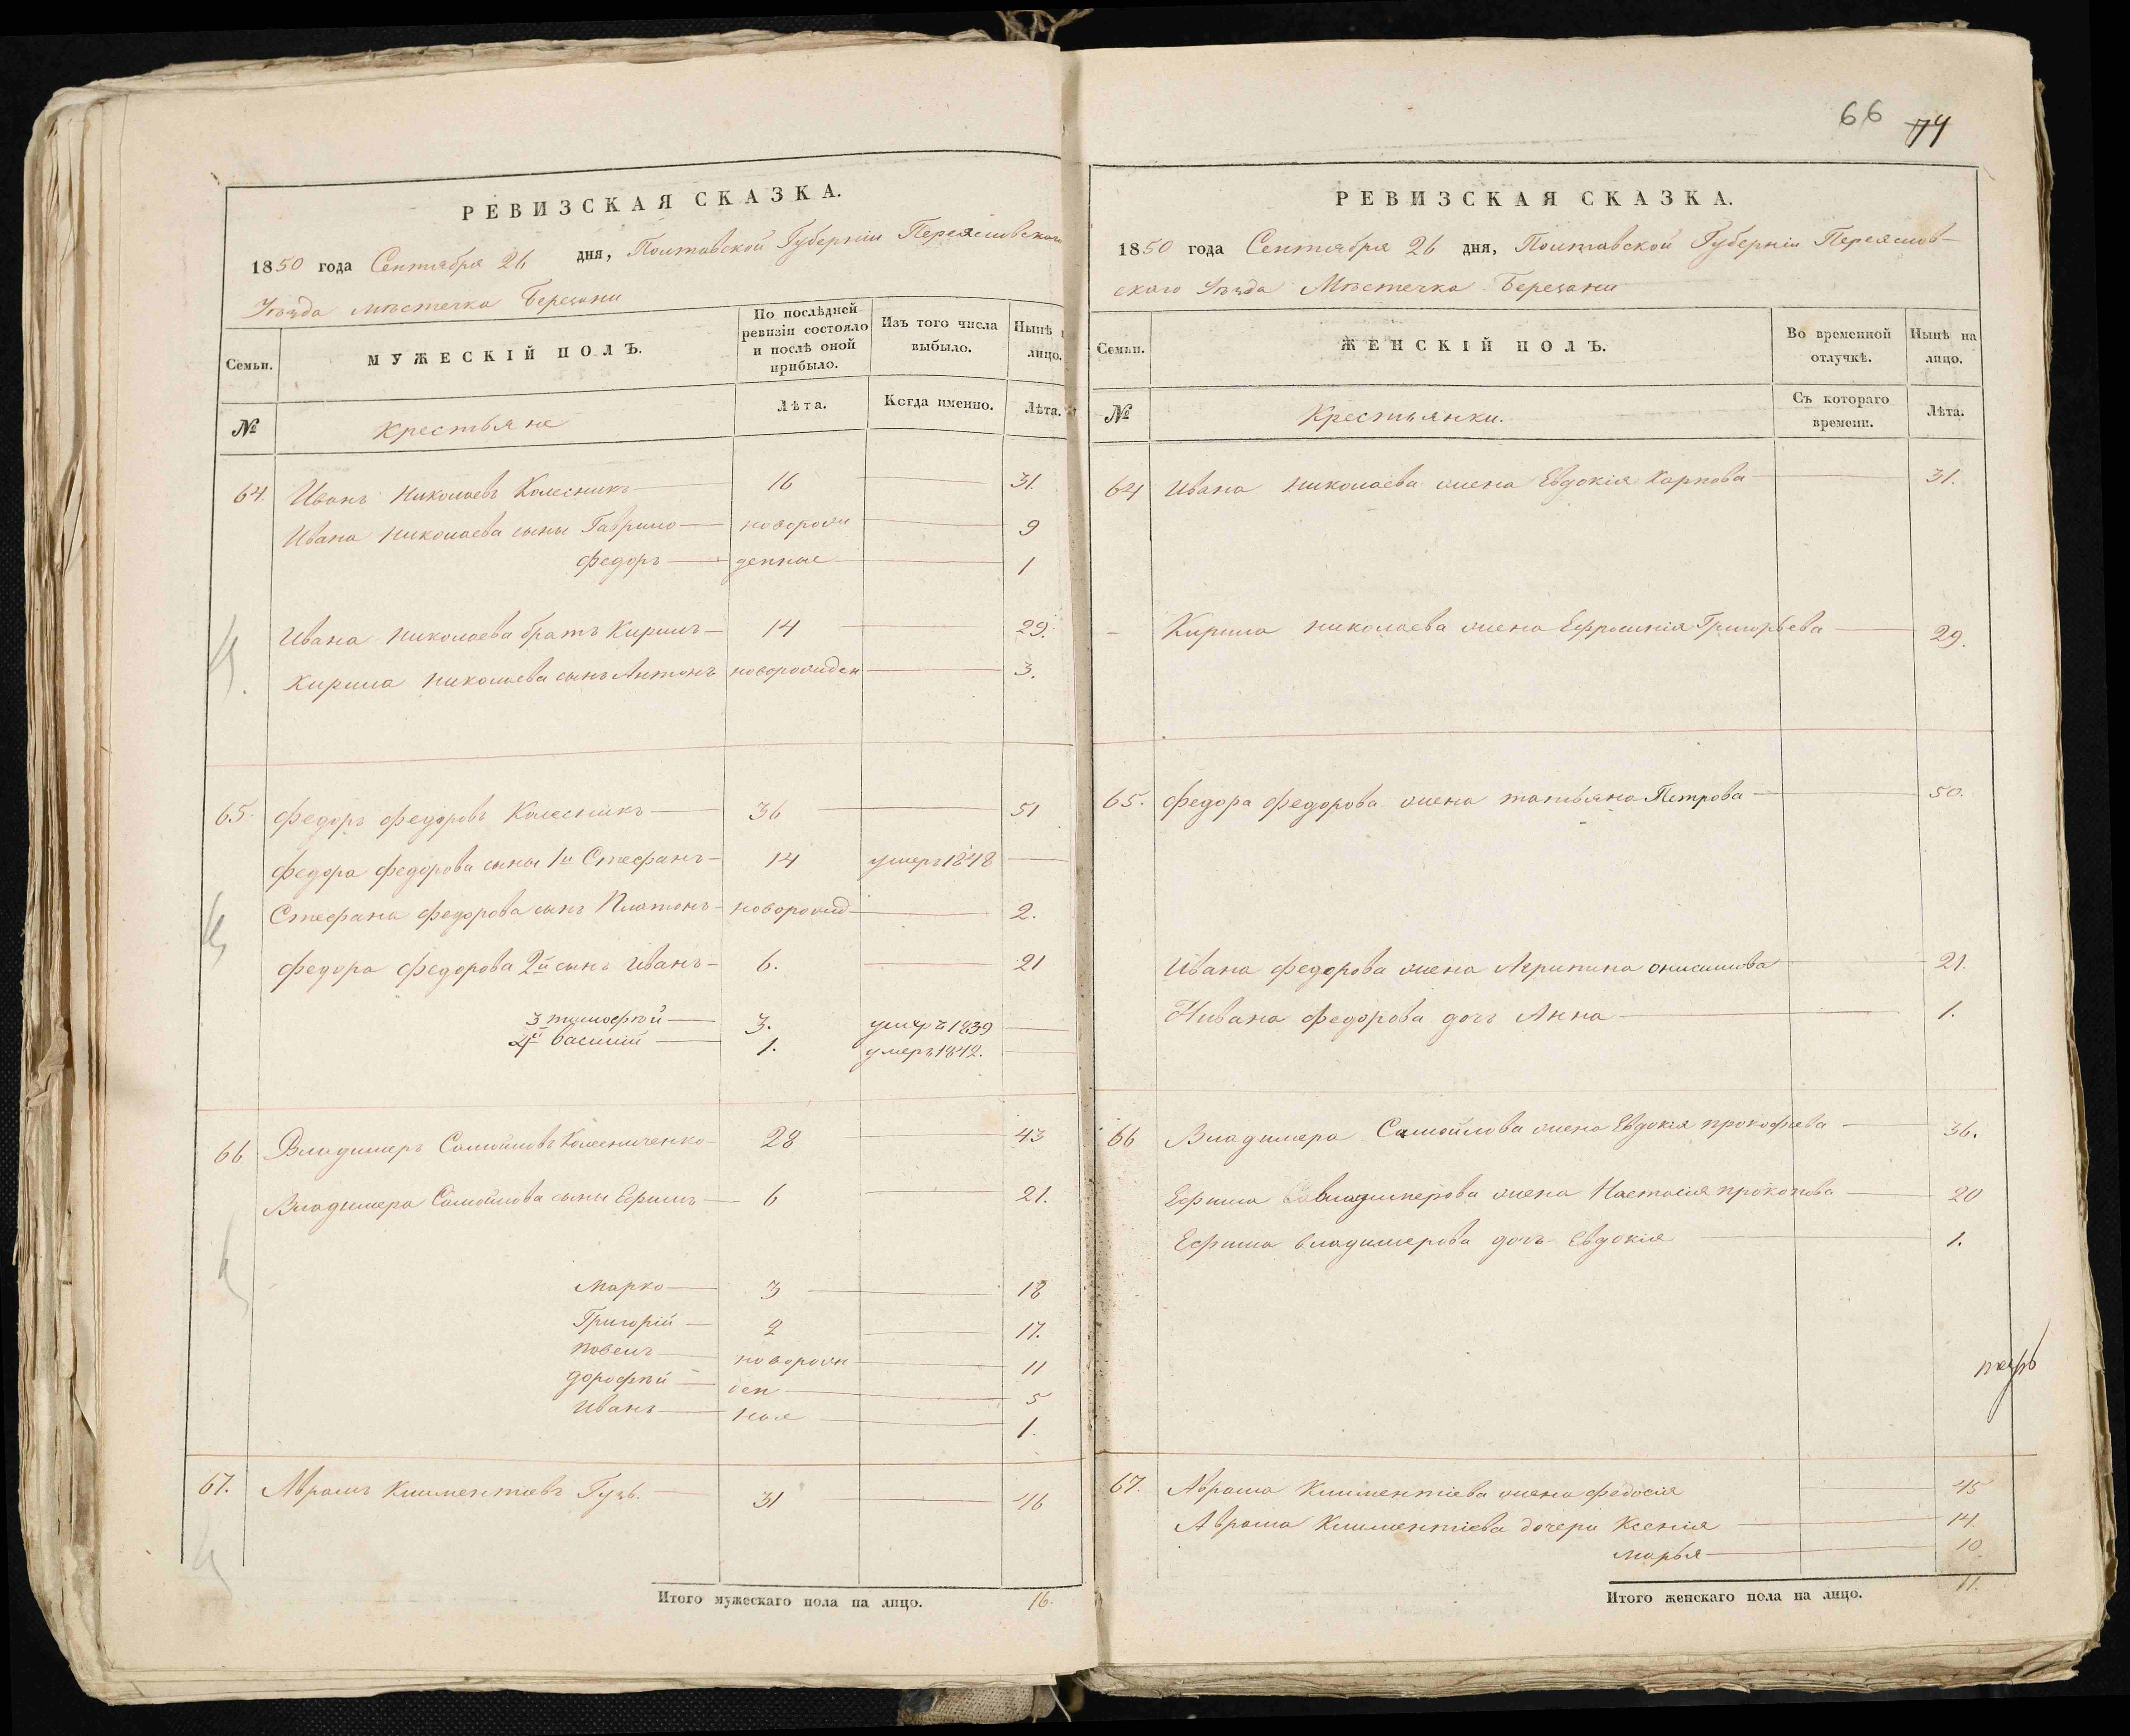 РЕВИЗСКАЯ СКАЗКА.
1850 года Сентября 26 дня, Полтавской Губерніи Переясловскаго
Уѣзда мѣстечка Березани
Семьи.
МУЖЕСКІЙ ПОЛЪ.
По послѣдней ревизіи состояло и послѣ оной прибыло.
Изъ того числа выбыло.
Нынѣ на лицо.
№
Крестьяне
Лѣта.
Когда именно.
Лѣта.
64. Иванъ Николаевъ Колесникъ 16 31.
Ивана Николаева сыны Гаврило новорож 9
Федоръ денные 1
Ивана Николаева братъ Кирилъ 14 29.
Кирила Николаева сынъ Антонъ новорожден 3.
65. Федоръ Федоровъ Колесникъ 36 51
Федора Федорова сыны 1й Стефанъ 14 умеръ 1848
Стефана Федорова сынъ Платонъ новорожд 2.
Федора Федорова 2й сынъ Иванъ 6. 21
3 тимофѣй 3. умеръ 1839
4й василій 1. умеръ 1842.
66 Владимеръ Самойловъ Колесниченко 28 43
Владимера Самойлова сыны Ефимъ 6 21.
Марко 3 18
Григорій 2 17.
Павелъ новорож 11
дорофѣй ден 5
Иванъ ные 1.
67. Аврамъ Климентіевъ Гузь. 31 46
Итого мужескаго пола на лицо. 16.
66 74
РЕВИЗСКАЯ СКАЗКА.
1850 года Сентября 26 дня, Полтавской Губерніи Переяслов-
скаго Уѣзда Мѣстечка Березани
Семьи.
ЖЕНСКІЙ ПОЛЪ.
Во временной отлучкѣ.
Нынѣ на лицо.
№
Крестьянки.
Съ котораго времени.
Лѣта.
64 Ивана Николаева жена Евдокія Карпова 31.
Кирила Николаева жена Ефросинія Григорьева 29.
65. Федора Федорова жена татьяна Петрова 50.
Ивана Федорова жена Агрипина онисимова 21.
Ивана Федорова дочь Анна 1.
66 Владимера Самойлова жена Евдокія прокофьева 36.
Ефима владимерова жена Настасія прокопова 20
Ефима владимерова дочь Евдокія 1.
67. Аврама Климентіева жена федосія 45
Аврама Климентіева дочери Ксенія 14
марья 10.
Итого женскаго пола на лицо. 11.